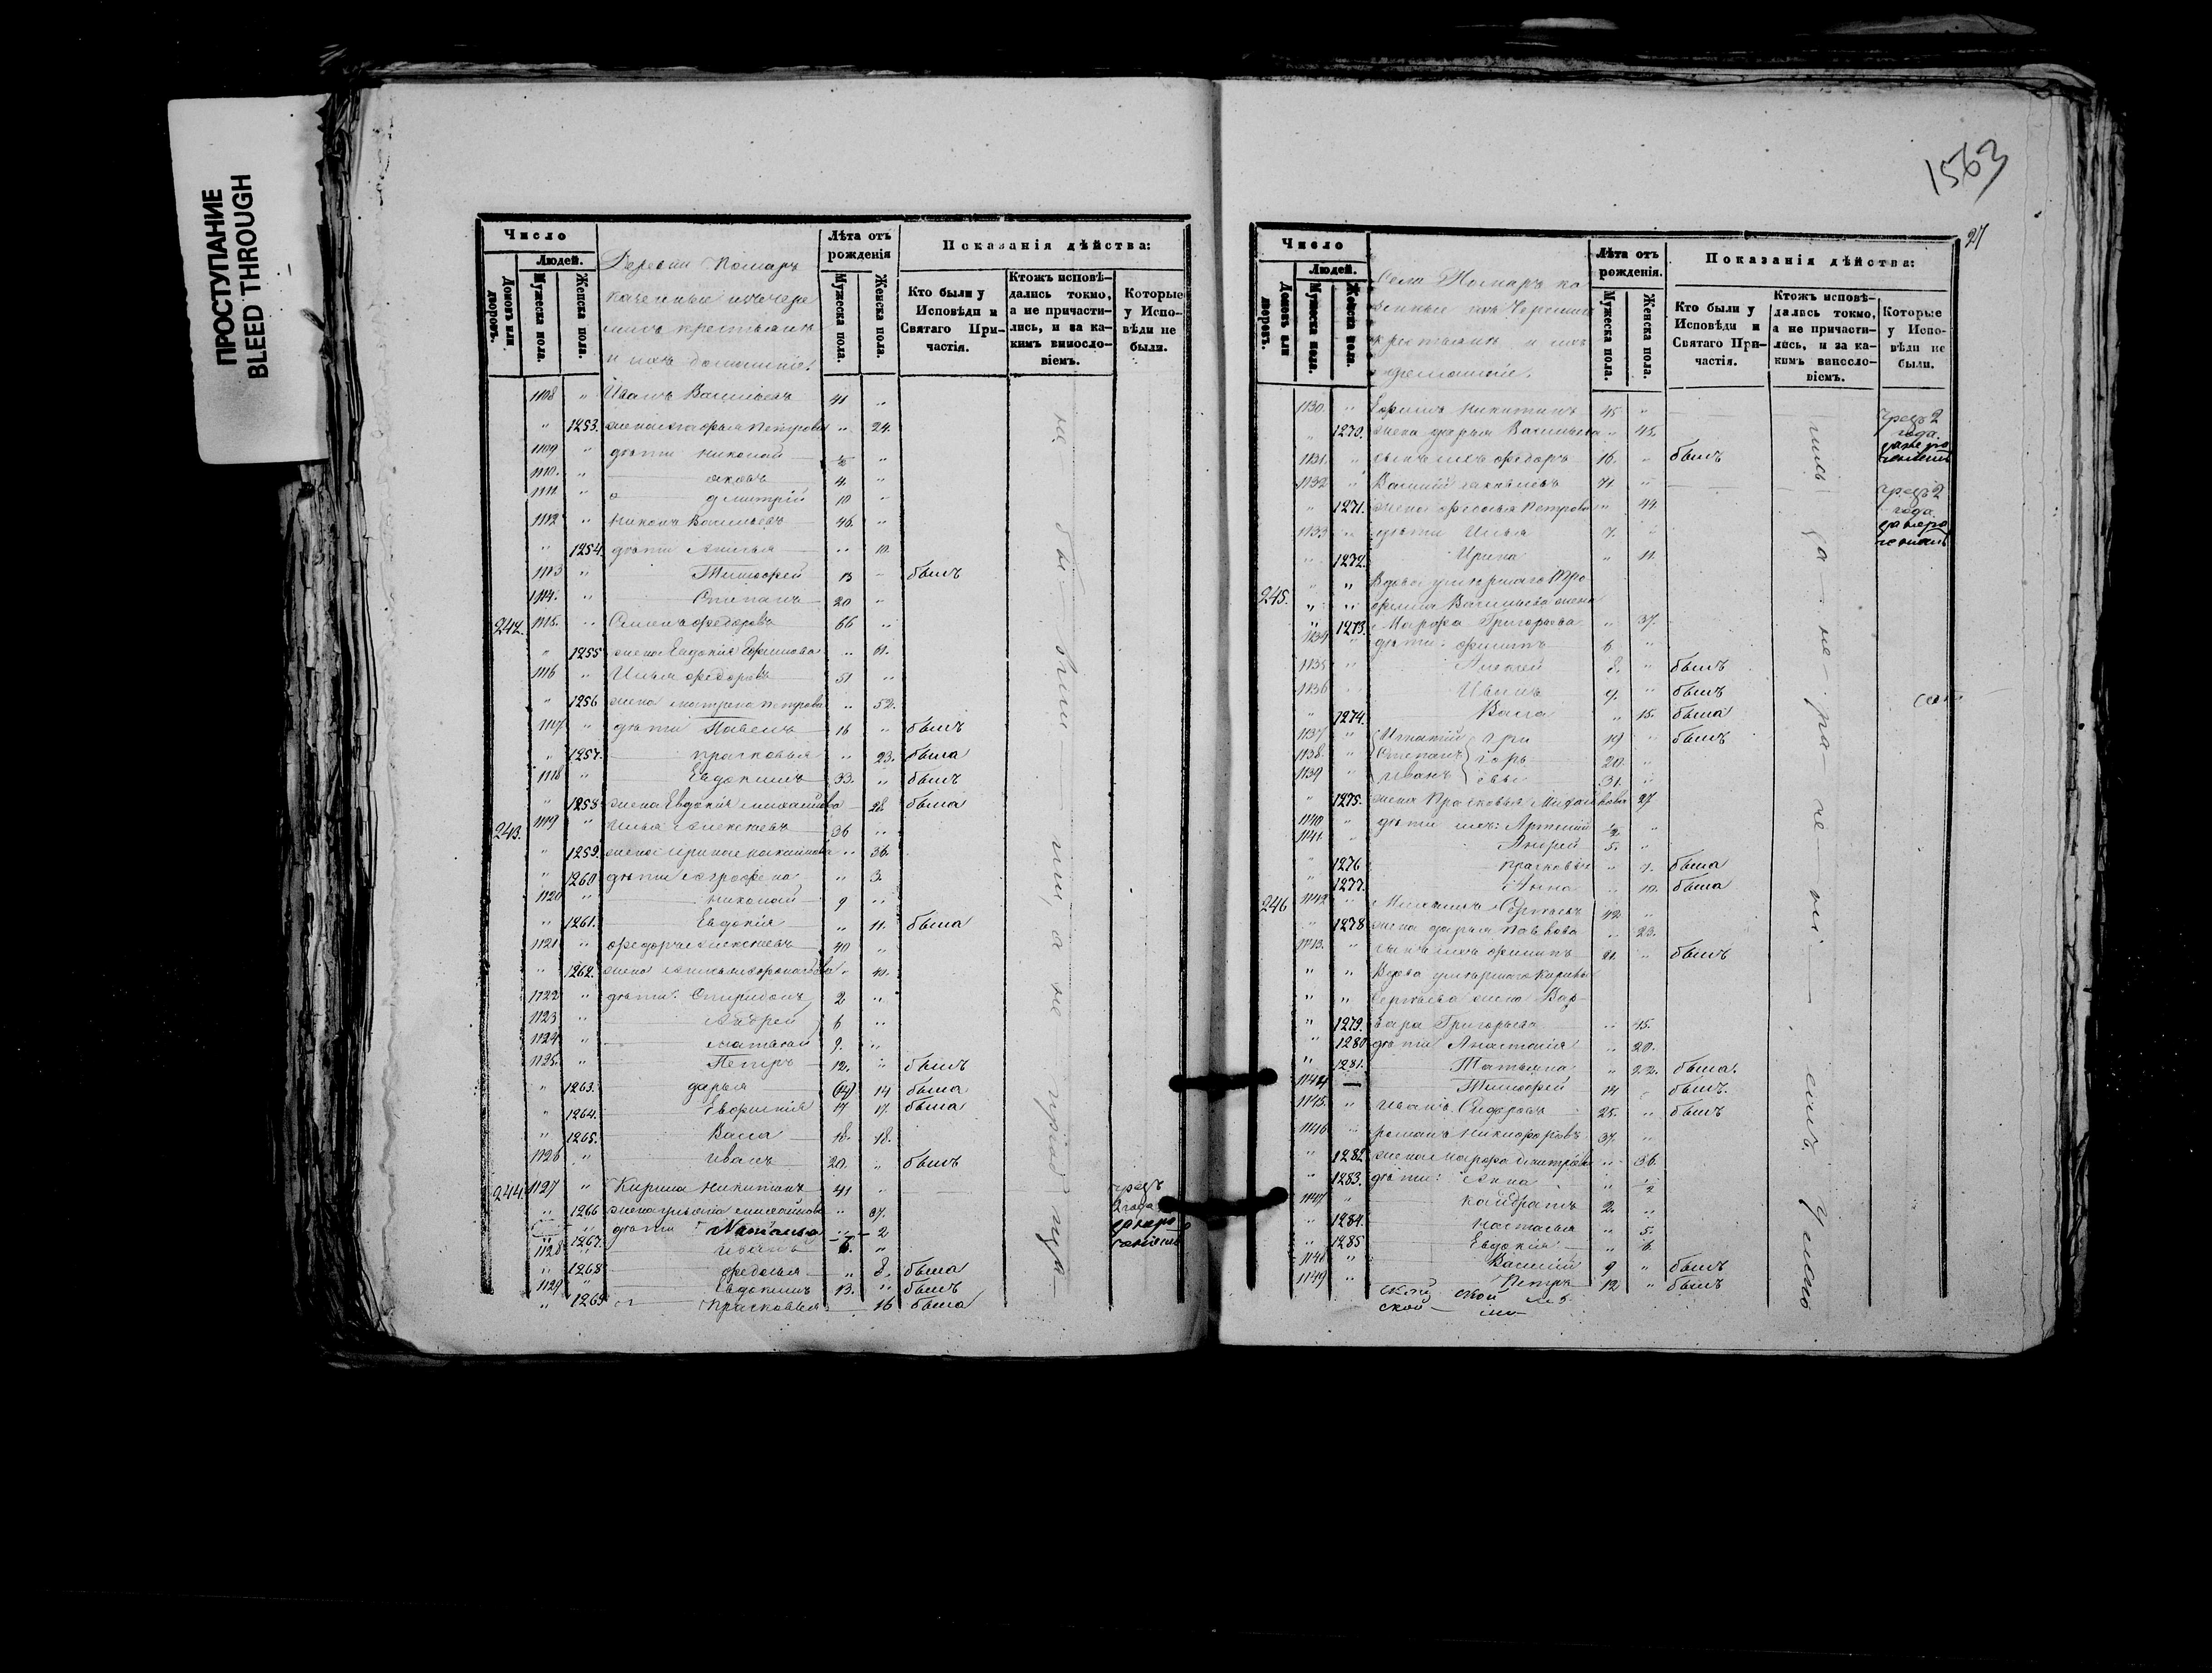 ПРОСТУПАНИЕ
BLEED THROUGH
Число
Людей.
Домовъ или дворовъ.
Мужеска пола.
Женска пола.
Деревни Помаръ
казенные изъ чере
мисъ крестьяне
и ихъ домашніе.
Лѣта отъ рожденія
Мужеска пола.
Женска пола.
Показанія дѣйства:
Кто были у Исповѣди и Святаго Причастія.
Ктожъ исповѣдались токмо, а не причастились, и за какимъ винословіемъ.
Которые у Исповѣди не были.
1108 " Иванъ Васильевъ 41 "
" 1253. жена Марья Петрова " 24.
1109 " дѣти Николай "
1110. " Яковъ 4. "
1111. " Дмитрій 10 "
1112 " Никонъ Васильевъ 46. "
" 1254. дѣти " 10.
1113 " Тимофей 13 - былъ
1114. " Степанъ 20 "
242. 1115. " Семенъ Федоровъ 66 "
" 1255 жена Евдокія Ефимова " 61.
1116 " Илья Федоровъ 51 "
" 1256 жена Матрена Петрова " 52.
1117 " дѣти Павелъ 16 " былъ
" 1257. Прасковья " 23. была
1118 " Евдокимъ 33. " былъ
" 1258 жена Евдокія Михайлова 28. была
243. 1119 " Илья Алексѣевъ 36 "
" 1259. жена Ирина " 36.
" 1260 дѣти Аграфена " 3.
1120 " Николай 9 "
" 1261. Евдокія " 11. была
1121 " Федоръ Алексѣевъ 40 "
" 1262. жена " 40.
1122 " дѣти: Спиридонъ 2 "
1123 " Андрей 6 "
1124 " Матвѣй 9. "
1125. " Петръ 12. " былъ
" 1263. Дарья 14 была
" 1264. Евфимія 17 17. была
" 1265. Васса 18. 18.
1126 " Иванъ 20. " былъ
244. 1127 " Кирила Никитинъ 41 "
" 1266 жена Ульяна Михайлова " 37.
" 1267. дѣти Наталья 2
1128 " Иванъ 6. "
" 1268 Федосья " 8. была
1129 " Евдокимъ 13. " былъ
" 1269 Прасковья 16 была
чрезъ
2 года
не бы- ли- ни, а не
1563
27
Число
Людей.
Домовъ или дворовъ.
Мужеска пола.
Женска пола.
Села Помаръ ка
зенные изъ Черемисъ
крестьяне и ихъ
домашніе.
Лѣта отъ рожденія.
Мужеска пола.
Женска пола.
Показанія дѣйства:
Кто были у Исповѣди и Святаго Причастія.
Ктожъ исповѣдались токмо, а не причастились, и за какимъ винословіемъ.
Которые у Исповѣди не были.
1130. " Ефимъ Никитинъ 45 "
" 1270. жена Дарья Васильева " 45.
1131. " сынъ ихъ Федоръ 16. " былъ
1132 " Василій 41. "
" 1271. жена Федосья Петрова " 44.
1133 " дѣти Илья 7. "
" 1272. Ирина " 11.
чрезъ 2
года.
чрезъ 2
года.
245. " " Вдова умершаго Тро
" " фима Васильева жена
" 1273. Марфа Григорьева " 37.
1134 " дѣти: Филипъ 6 "
1135 " Алексей 8. " былъ
1136 " Иванъ 9. " былъ
" 1274. Васса " 15. была
1137 " Игнатій гри 19 " былъ
1138. " Степанъ горь 20. "
1139 " Иванъ евы 31. "
" 1275. жена Прасковья Михайлова 27
1140 " дѣти ихъ: Артемій "
1141. " Андрей 5. "
" 1276 Прасковья " 7. была
" 1277. Анна " 10. была
246 1142 " Михаилъ Сергѣевъ 42 "
" 1278 жена Дарья " 23.
1143. " сынъ ихъ Филипъ 21. " былъ
" " Вдова умершаго Кирила
" " Сергѣева жена Вар-
" 1279. вара Григорьева " 45.
" 1280 дѣти Анастасія " 20.
" 1281. Татьяна " 22. была.
1144 — Тимофей 14 былъ.
1145. " Иванъ Сидоровъ 25. " былъ
1146 " Романъ Никифоровъ 37. "
" 1282 жена Марфа Дмитріева " 36.
" 1283. дѣти: Анна "
1147 " Кайдратъ 2. "
" 1284. Настасья " 5.
" 1285 Евдокія " 6.
1148 " Василій 9 " былъ
1149 " Петръ 12 " былъ